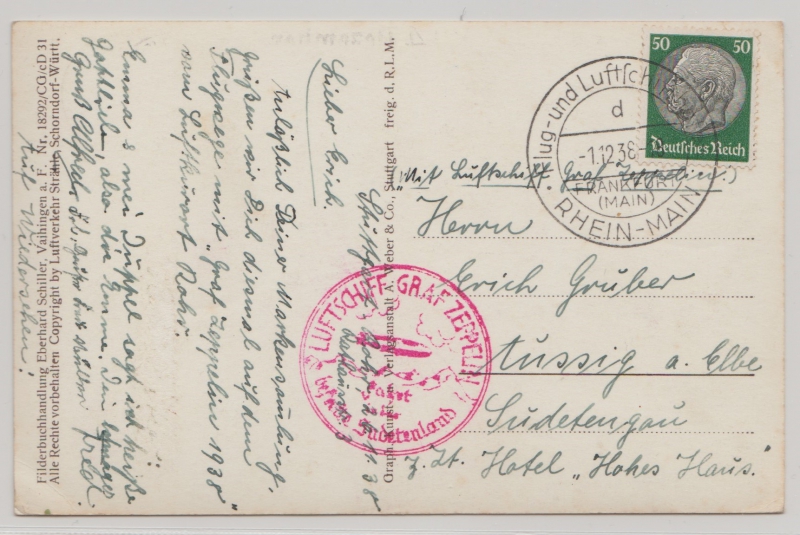 Filderbuchhandlung Eberhard Schiller, Vaihingen a. F. Nr. 18292/CG/cD 31
Alle Rechte vorbehalten Copyright by Luftverkehr Strähle, Schorndorf-Württ.
Graph. Kunst- u. Verlagsanstalt A. Weber & Co., Stuttgart freig. d. R.L.M.
Stuttgart Rohr
38
Lieber Erich.
Anläßlich Deiner Markensammlung,
grüßen wir Dich diesmal auf dem
Flugwege mit "Graf Zeppelin 1938"
vom Luftkurort Rohr.
Emma
also die Emma. Dein
Gruß Alfred
Fredl
Auf Wiedersehen!
50 50
Deutsches Reich
Flug- und Luftsch
d
-1.12.38
FRANKFURT
(MAIN)
RHEIN-MAIN
"Mit Luftschiff Graf Zeppelin."
Herrn
Erich Gruber
Aussig a. Elbe
Sudetengau
z. Zt. Hotel "Hohes Haus".
LUFTSCHIFF GRAF ZEPPELIN
Fahrt
befreite Sudetenland